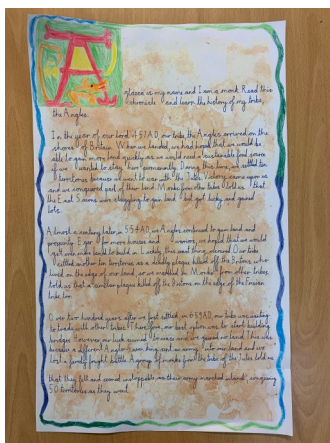 A
glaeca is my name and I am a monk. Read this
chronicle and learn the history of my tribe,
the Angles.
In the year of our lord 457AD, our tribe the Angles arrived on the
shores of Britain. When we landed, we had hoped that we would be
able to gain more land quickly as we would need a sustainable food source
if we wanted to stay here permanently. During this time, we settled
territories because we went to war with the Jutes. Victory came upon us
and we conquered part of their land. Monks from the tribes told us that
the East Saxons were struggling to gain land but got lucky and gained
lots.
Almost a century later, in 554AD, we Angles continued to gain land and
prosperity. Eager for more houses and warriors, we hoped that we would
get even more land to build on. Luckily, this was
settled another ten territories as a deadly plague killed off the Britons who
lived on the edge of our land, so we Monks from other tribes
told us that a similar plague killed off the Britons on the edge of the
tribe too.
Over two hundred years after we first settled, in 659AD, our tribe was waiting
to trade with other tribes. Therefore, our best option was to start building
bridges. However, no luck and we gained no land. This was
because a different Anglo-Saxon tribe sent an army into our land and we
lost a lengthy battle. A group of monks from the tribe of the Jutes told us
that they felt and seemed unstoppable as their army marched inland conquering
50 territories as they went.